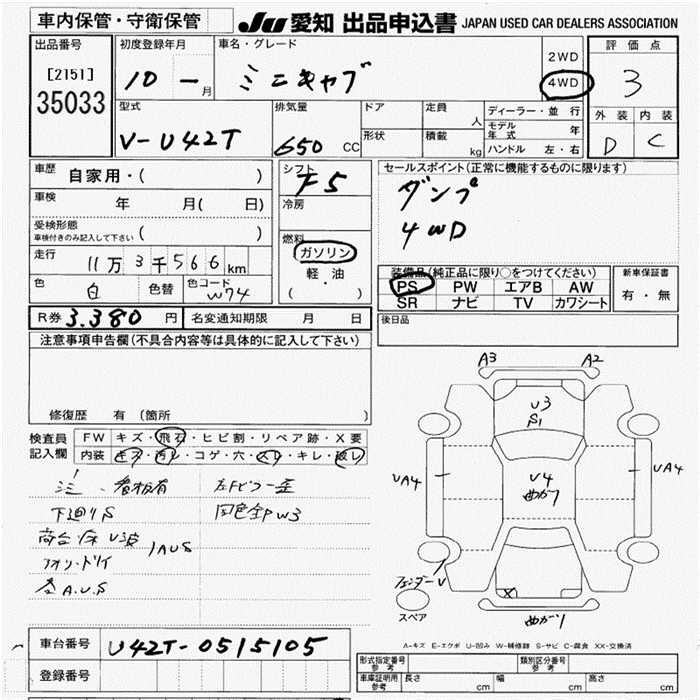 車内保管・守衛保管 JU 愛知 出品申込書 JAPAN USED CAR DEALERS ASSOCIATION
出品番号 初度登録年月 車名・グレード 2WD 評価点
[2151] 10 ― 月 ミニキャブ 4WD 3
35033
型式 排気量 ドア 定員 人 ディーラー・並行 外装 内装
V-U42T 650 CC 形状 積載 kg モデル年式 年 D C
ハンドル 左・右
車歴 自家用・( ) シフト F5 セールスポイント(正常に機能するものに限ります)
車検 年 月( 日) 冷房 ダンプ
受検形態 ( ) 4WD
車検付きのみ記入して下さい
燃料 ガソリン 装備品(純正品に限り○をつけてください) 新車保証書
走行 11万3千566km 軽・油 PS PW エアB AW 有・無
色 白 色替 色コード W74 ( ) SR ナビ TV カワシート
R券 3.380 円 名変通知期限 月 日 後日品
注意事項申告欄(不具合内容等は具体的に記入して下さい)
修復歴 有 (箇所 )
検査員 FW キズ・飛石・ヒビ割・リペア跡・X要
記入欄 内装 キズ・汚レ・コゲ・穴・スレ・キレ・破レ
看板有
下廻りS W3
荷台・床 U 1AUS
A.U.S
A3 A2
U3
S1
UA4 U4 UA4
曲がり
フェンダーU
X
スペア 曲がり
A-キズ E-エクボ U-凹み W-補修跡 S-サビ C-腐食 XX-交換済
車台番号 U42T-0515105
登録番号
形式指定番号 参考 類別区分番号 参考
車庫証明用 参考 長さ cm 幅 cm 高さ cm